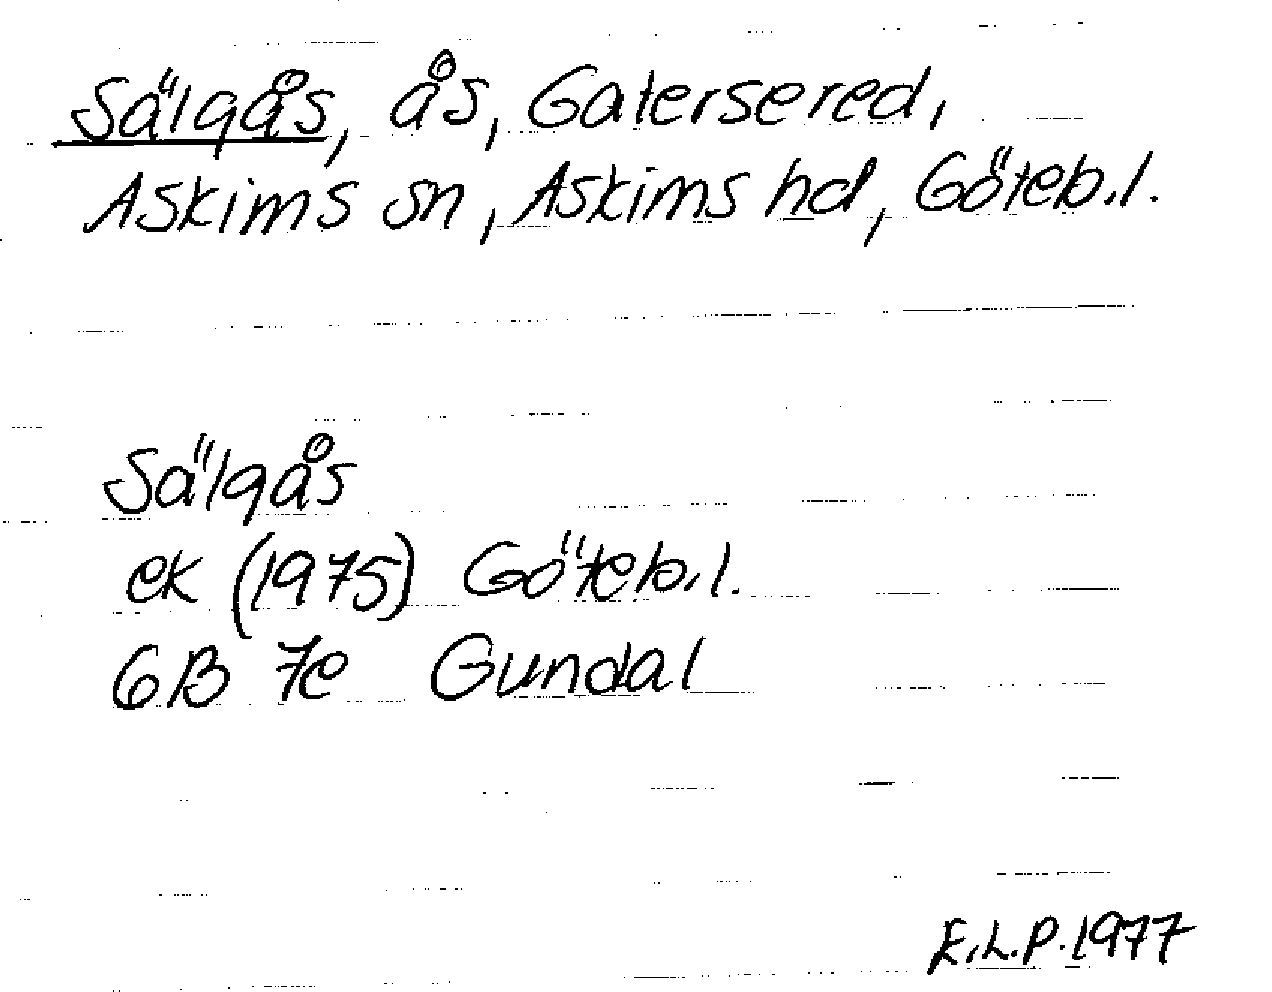 Sälgås, ås, Gatersered,
Askims sn, Askims hd, Göteb.l.
Sälgås
ek (1975) Göteb.l.
6B 7e Gundal
E.L.P. 1977